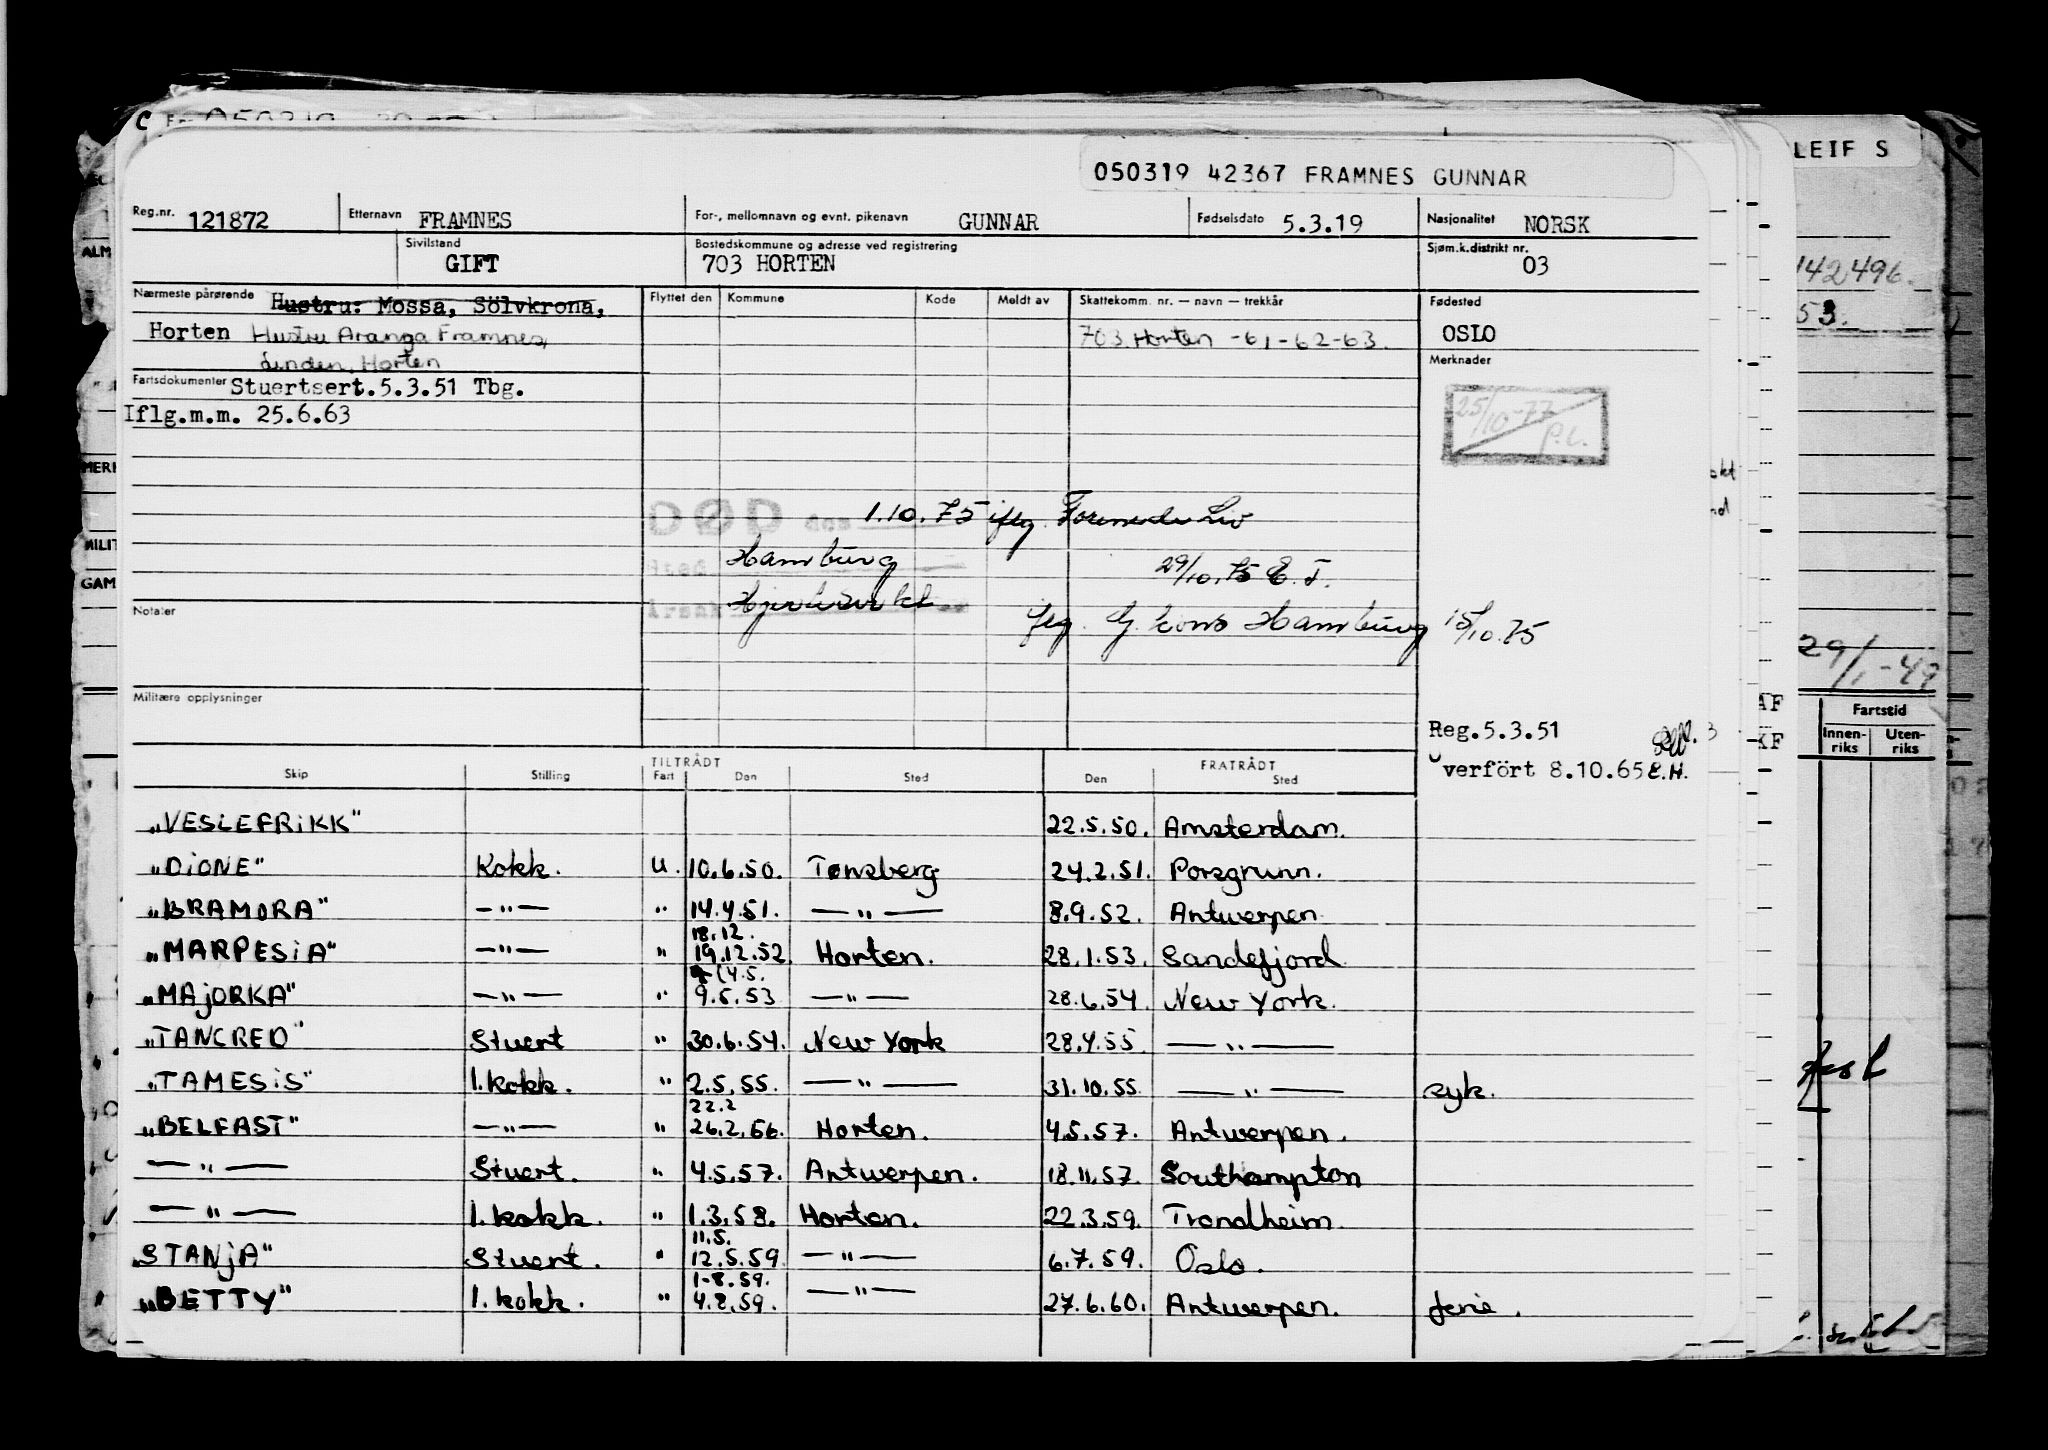 LEIF S
050319 42367 FRAMNES GUNNAR
Reg.nr. 121872 Etternavn FRAMNES For-, mellomnavn og evnt. pikenavn GUNNAR Fødselsdato 5.3.19 Nasjonalitet NORSK
Sivilstand GIFT Bostedskommune og adresse ved registrering 703 HORTEN Sjøm.k.distrikt nr. 03
142496.
Nærmeste pårørende Hustru: Mossa, Sölvkrona, Flyttet den Kommune Kode Meldt av Skattekomm. nr. — navn — trekkår Fødested
53.
Horten Hustru Aranga Framnes, 703 Horten -61-62-63. OSLO
Linden, Horten Merknader
Fartsdokumenter Stuertsert.5.3.51 Tbg.
Iflg.m.m. 25.6.63
25/10-77 P.L.
DØD den 1.10.75 iflg.
Sted Hamburg 29/10.75 E.T.
Årsak
Notater Hamburg 15/10.75
29/1-49
Militære opplysninger
Reg.5.3.51
Overfört 8.10.65 E.H.
Fartstid
Innenriks Utenriks
TILTRÅDT FRATRÅDT
Skip Stilling Fart Den Sted Den Sted
"VESLEFRIKK" 22.5.50. Amsterdam.
"DIONE" Kokk. U. 10.6.50. Tønsberg 24.2.51. Porsgrunn.
"BRAMORA" —"— " 14.4.51. —"— 8.9.52. Antwerpen
18.12.
"MARPESIA" —"— " 19.12.52. Horten. 28.1.53. Sandefjord
(4.5.
"MAJORKA" —"— " 9.5.53 —"— 28.6.54. New York.
"TANCRED" Stuert " 30.6.54. New York 28.4.55 —"—
"TAMESIS" 1.kokk. " 2.5.55. —"— 31.10.55. —"— syk.
22.2
"BELFAST" —"— " 26.2.56. Horten. 4.5.57. Antwerpen.
—"— Stuert. " 4.5.57. Antwerpen. 18.11.57. Southampton
—"— 1.kokk. " 1.3.58. Horten. 22.3.59. Trondheim.
11.5.
"STANJA" Stuert. " 12.5.59. —"— 6.7.59. Oslo.
1-8.59.
"BETTY" 1.kokk. " 4.8.59. —"— 27.6.60. Antwerpen. ferie.